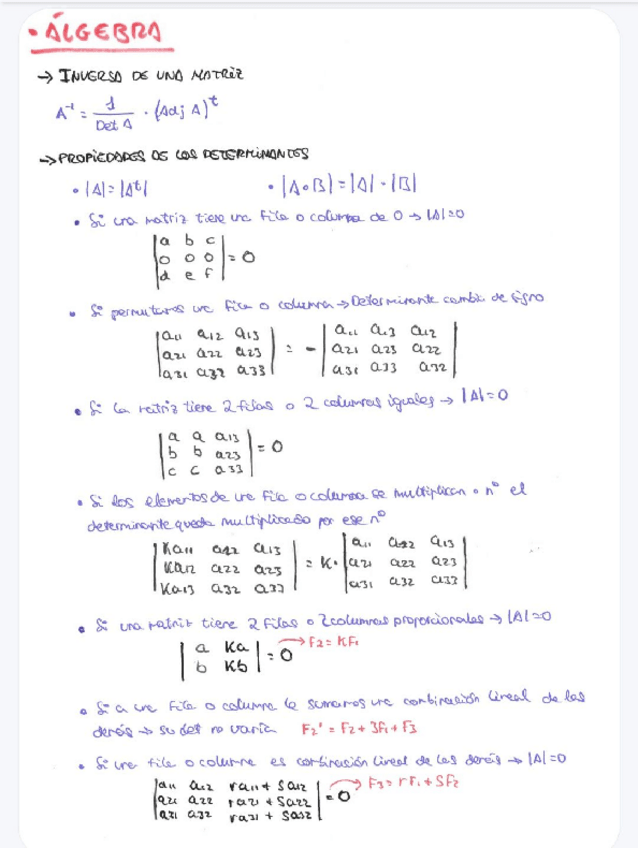 • ÁLGEBRA
→ INVERSA DE UNA MATRIZ
A⁻¹ = 1 / Det A · (Adj A)ᵗ
→ PROPIEDADES DE LOS DETERMINANTES
• |A| = |Aᵗ| • |A∘B| = |A| · |B|
• Si una matriz tiene una fila o columna de 0 → |A| = 0
|a b c|
|0 0 0| = 0
|d e f|
• Si permutamos una fila o columna → Determinante cambia de signo
|a11 a12 a13| |a11 a13 a12|
|a21 a22 a23| = - |a21 a23 a22|
|a31 a32 a33| |a31 a33 a32|
• Si la matriz tiene 2 filas o 2 columnas iguales → |A| = 0
|a a a13|
|b b a23| = 0
|c c a33|
• Si los elementos de una fila o columna se multiplican · nº el
determinante queda multiplicado por ese nº
|Ka11 a12 a13| |a11 a12 a13|
|Ka12 a22 a23| = K· |a21 a22 a23|
|Ka13 a32 a33| |a31 a32 a33|
• Si una matriz tiene 2 filas o 2 columnas proporcionales → |A| = 0
|a Ka| → F2 = KF1
|b Kb| = 0
• Si a una fila o columna le sumamos una combinación lineal de las
demás → su det no varía F2' = F2 + 3F1 + F3
• Si una fila o columna es combinación lineal de las demás → |A| = 0
|a11 a12 ra11 + sa12| → F3 = rF1 + SF2
|a21 a22 ra21 + sa22| = 0
|a31 a32 ra31 + sa32|